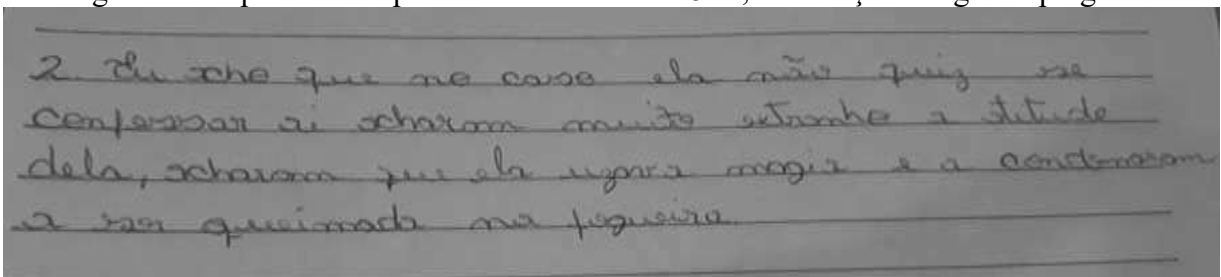 2. Eu acho que no caso ela não quiz se
confessar ai acharam muito estranho a atitude
dela, acharam que ela uzava magia e a condenaram
a ser queimada na fogueira.